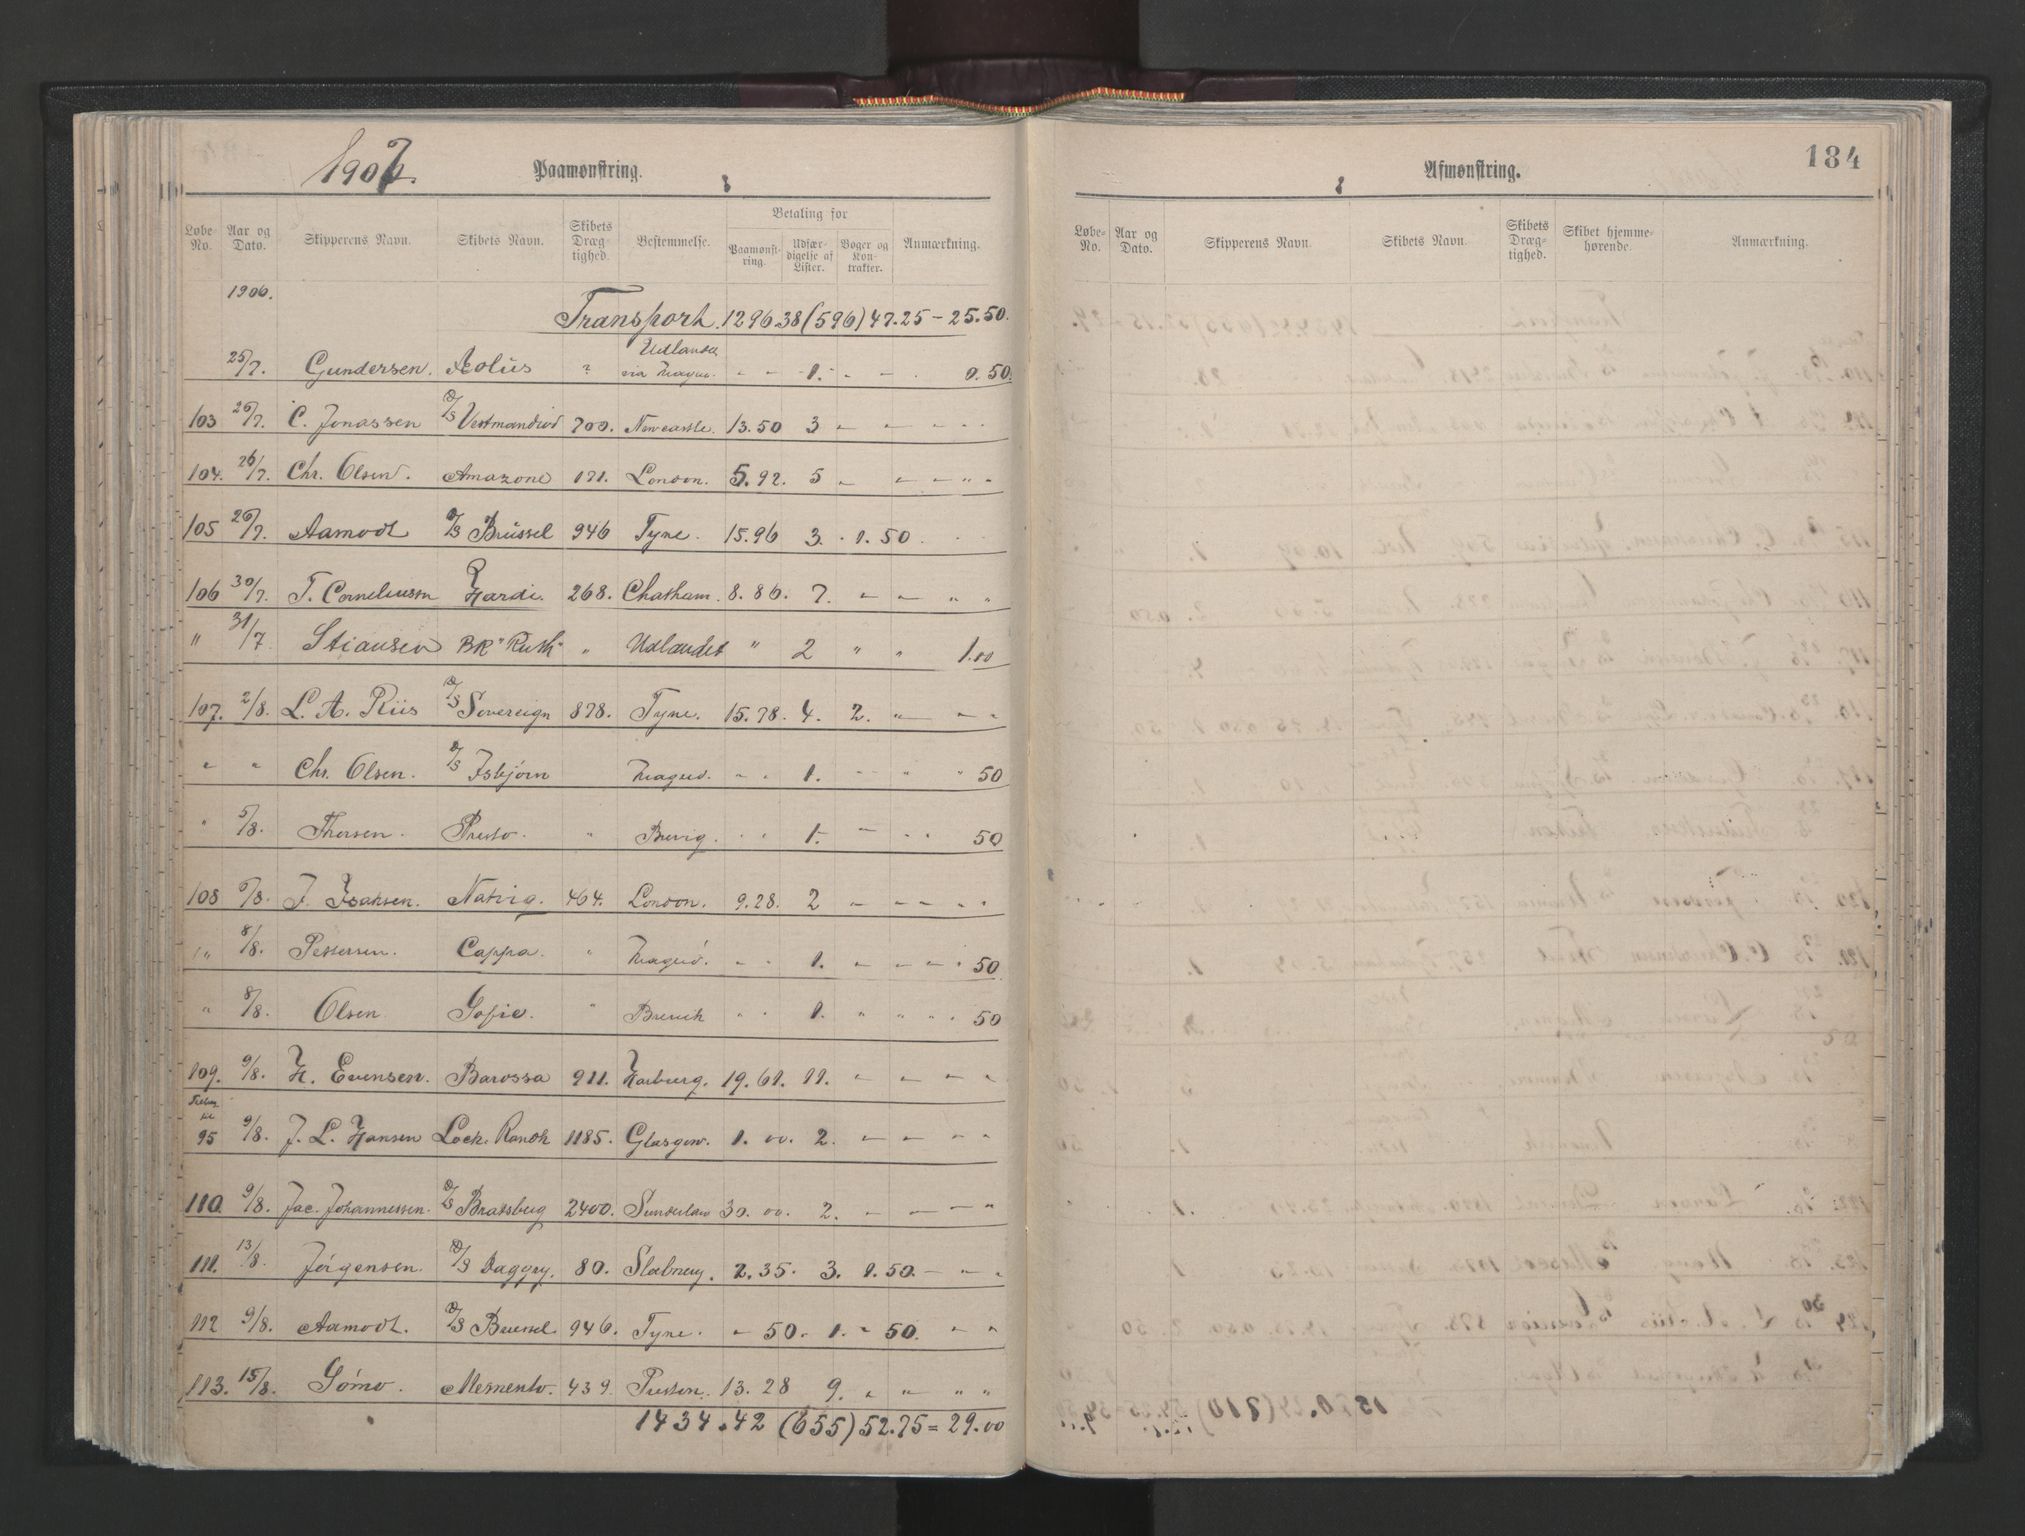 1907.
Paamønstring.
Løbe-No. Aar og Dato. Skipperens Navn. Skibets Navn. Skibets Dræg-tighed. Bestemmelse. Betaling for Paamønst-ring. Udfær-digelse af Lister. Bøger og Kon-trakter. Anmærkning.
1906.
Transport. 1296.38 (596) 47.25 — 25.50.
25/7. Gundersen. Aolus " Udlandet via - - 1. - - . 0.50.
103 26/7. C. Jonassen D/S 700. Newcastle. 13.50 3 - - - -
104. 26/7. Chr. Olsen. Amazone 171. London. 5.92. 5 - - - " "
105 26/7. Aamodt D/S Brüssel 946 Tyne. 15.96 3. . 1.50 . .
106 30/7. T. Corneliussen Hardi. 268. Chatham. 8.86. 7. - - " "
" 31/7 Stiansen BK "Ruth" " Udlandet " 2 " " 1.00
107. 2/8. L. A. Riis D/S Sovereign 878. Tyne. 15.78. 4. 2. " - -
" " Chr. Olsen. D/S Isbjørn - - 1. - " " 50
" 5/8. Thorsen. Presto. " Brevig. . . 1. - . . 50
108 6/8. J. Isaksen. Natvig. 464. London. 9.28. 2 - - - " "
" 8/8. Pettersen. Cappa. " - - 1. - - - . 50
" 8/8. Olsen Sofie. " " " 1. " " " . 50
109. 9/8. H. Evensen. Barossa 911. Harburg. 19.61. 11. - - - -
95 9/8. J. L. Hansen Loch. Ranoh 1185. Glasgow. 1.00. 2. - - - "
110. 9/8. Jac. Johannessen. D/S Bratsberg 2400. 30.00. 2. - - - "
111. 13/8. Jørgensen. D/S Daggry. 80. 2.35. 3. 1.50. - " "
112 9/8. Aamodt. D/S Brussel 946. Tyne. - 50. 1. - 50. " "
113. 15/8. Sømo. Memento. 439. Preston. 13.28 9. " " " "
1434.42 (655) 52.75 = 29.00
184
Afmønstring.
Løbe-No. Aar og Dato. Skipperens Navn. Skibets Navn. Skibets Dræg-tighed. Skibet hjemme-hørende. Anmærkning.